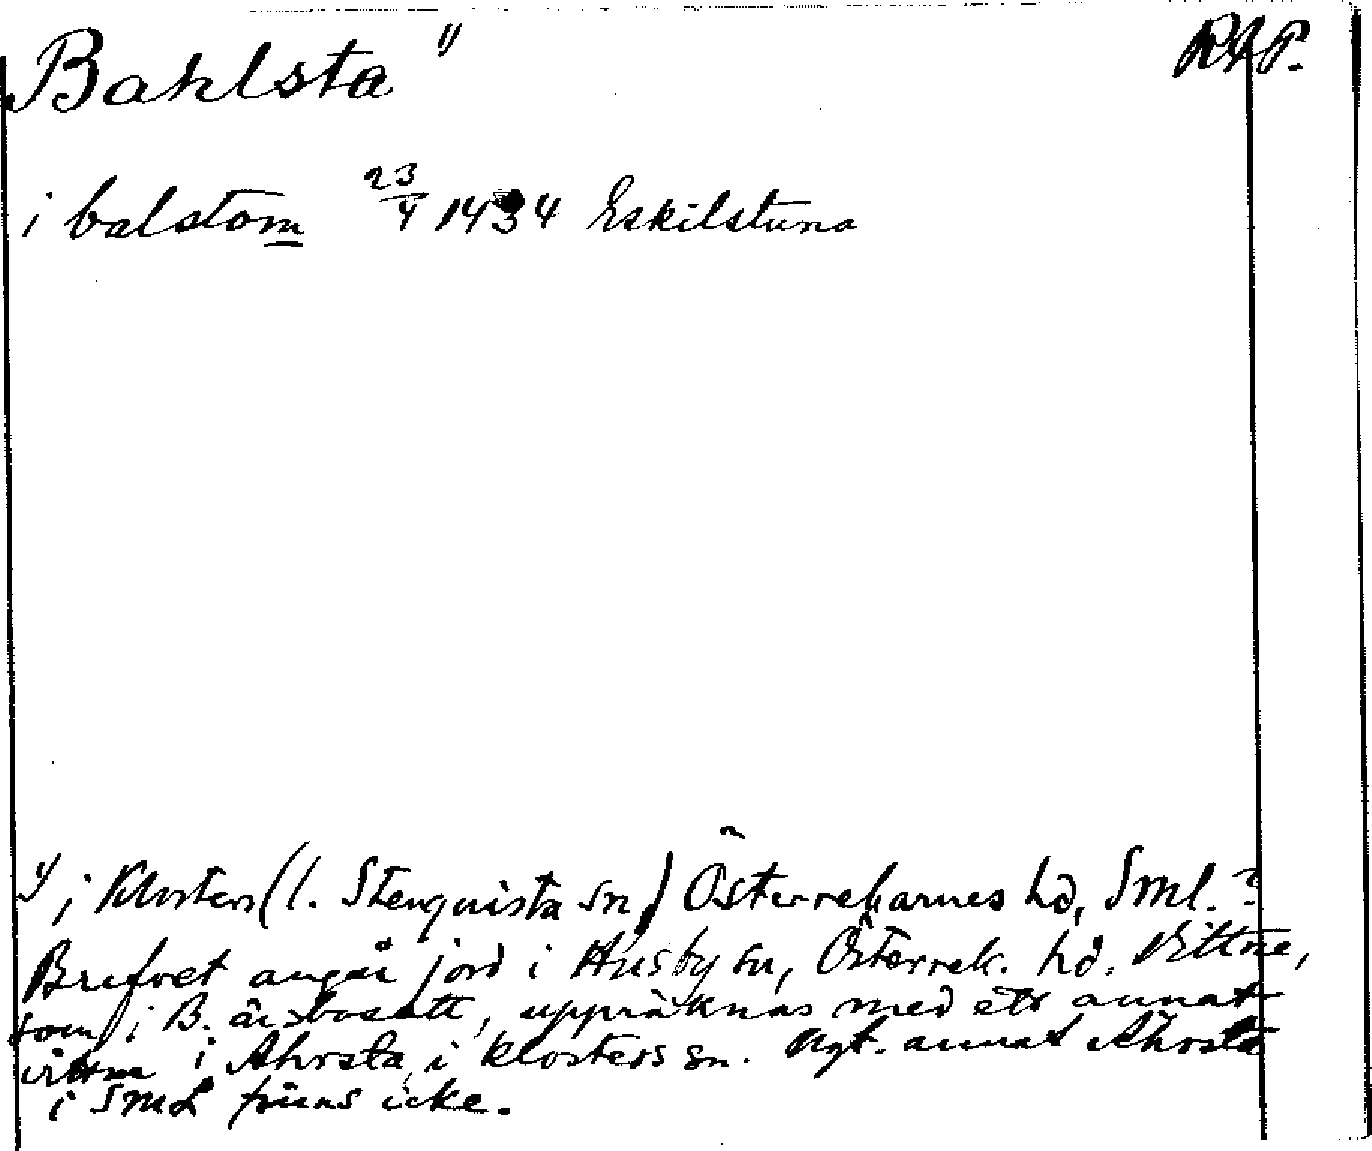 Bahlsta " RAP.
i balstom 23/4 1434 Eskilstuna
") i Klosters (l. Stenquista sn) Österrekarnes hd, Sml.?
Brefvet angår jord i Husby sn, Österrek. hd. Vittne,
som i B. är bosatt, uppräknas med ett annat
vittne i Åhrsta, i Klosters sn. Ngt. annat Åhrsta
i Sml finns icke.